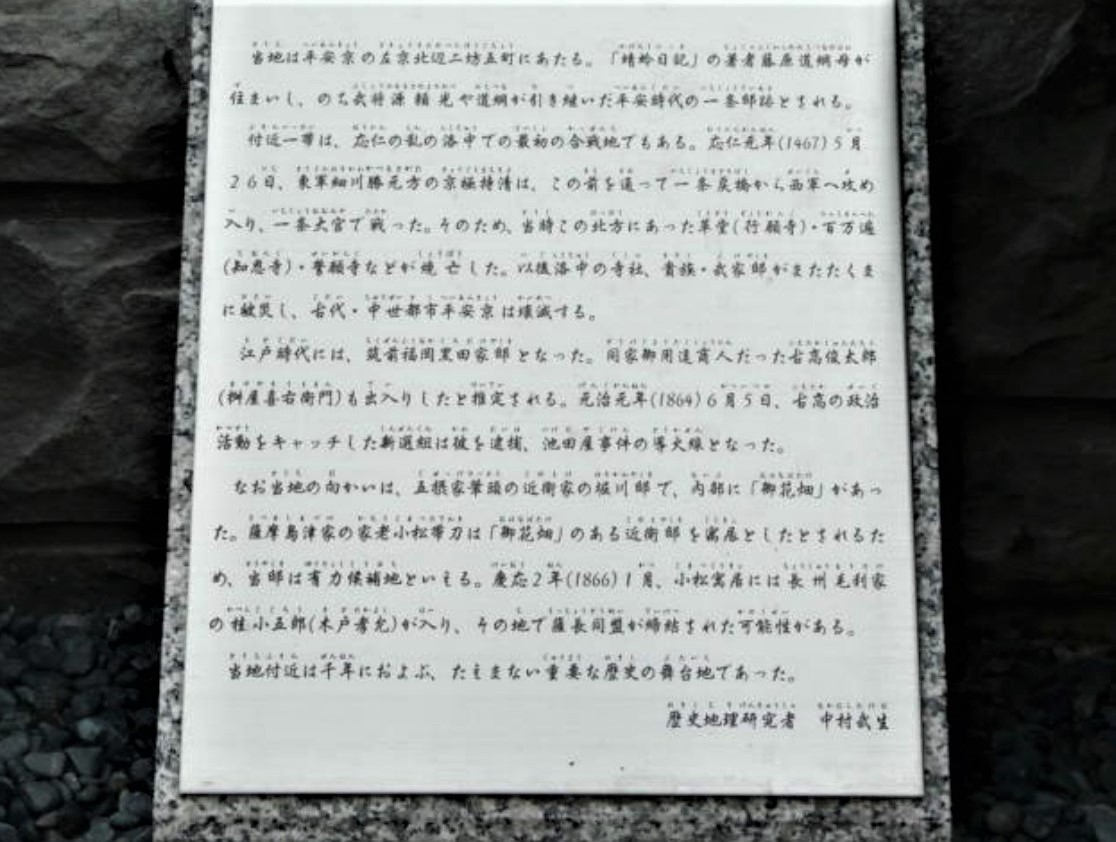 当地は平安京の左京北辺二坊五町にあたる。「蜻蛉日記」の著者藤原道綱母が
住まいし、のち武将源頼光や道綱が引き継いだ平安時代の一条邸跡とされる。
付近一帯は、応仁の乱の洛中での最初の合戦地でもある。応仁元年(1467)5月
26日、東軍細川勝元方の京極持清は、この前を通って一条戻橋から西軍へ攻め
入り、一条大宮で戦った。そのため、当時この北方にあった革堂(行願寺)・百万遍
(知恩寺)・誓願寺などが焼亡した。以後洛中の寺社、貴族・武家邸がまたたくま
に被災し、古代・中世都市平安京は壊滅する。
江戸時代には、筑前福岡黒田家邸となった。同家御用達商人だった古高俊太郎
(桝屋喜右衛門)も出入りしたと推定される。元治元年(1864)6月5日、古高の政治
活動をキャッチした新選組は彼を逮捕、池田屋事件の導火線となった。
なお当地の向かいは、五摂家筆頭の近衛家の堀川邸で、内部に「御花畑」があっ
た。薩摩島津家の家老小松帯刀は「御花畑」のある近衛邸を寓居としたとされるた
め、当邸は有力候補地といえる。慶応2年(1866)1月、小松寓居には長州毛利家
の桂小五郎(木戸孝允)が入り、その地で薩長同盟が締結された可能性がある。
当地付近は千年におよぶ、たえまない重要な歴史の舞台地であった。
歴史地理研究者 中村武生